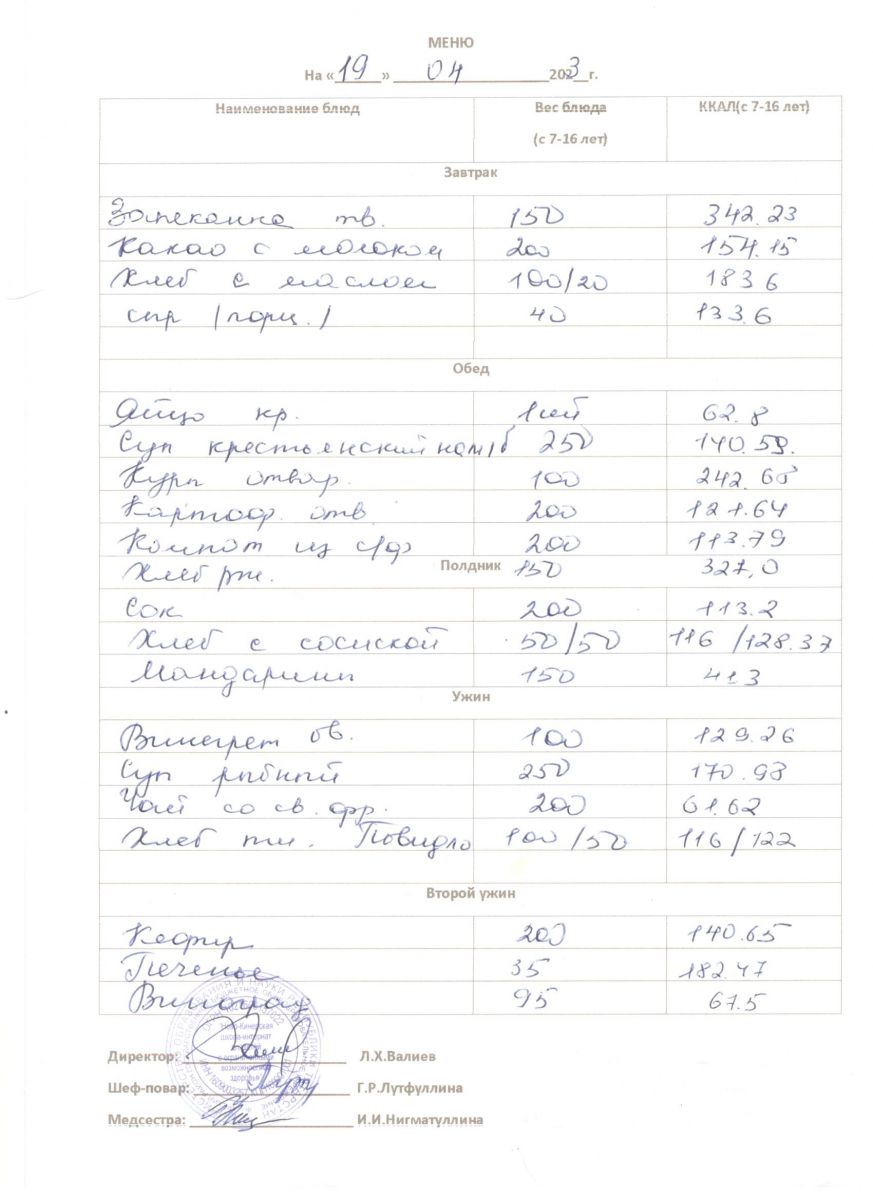 МЕНЮ
На «19» 04 2023 г.
Наименование блюд Вес блюда (с 7-16 лет) ККАЛ(с 7-16 лет)
Завтрак
Запеканка тв. 150 342.23
Какао с молоком 200 154.15
Хлеб с маслом 100/20 183 6
сыр /порц./ 40 133.6
Обед
Яйцо кр. 1 62.8
Суп крестьянский 250 140.59.
Куры отвар. 100 242.68
Картоф. отв 200 121.64
Компот из с/ф 200 113.79
Полдник
Хлеб рж. 150 327,0
Сок 200 113.2
Хлеб с сосиской 50/50 116 /128.37
Мандарины 150 413
Ужин
Винегрет ов. 100 129.26
Суп рыбный 250 170.93
Чай со св. фр. 200 61.62
Хлеб пш. Повидло 100/50 116/122
Второй ужин
Кефир 200 140.65
Печенье 35 182.47
Виноград 95 67.5
Директор: Л.Х.Валиев
Шеф-повар: Г.Р.Лутфуллина
Медсестра: И.И.Нигматуллина